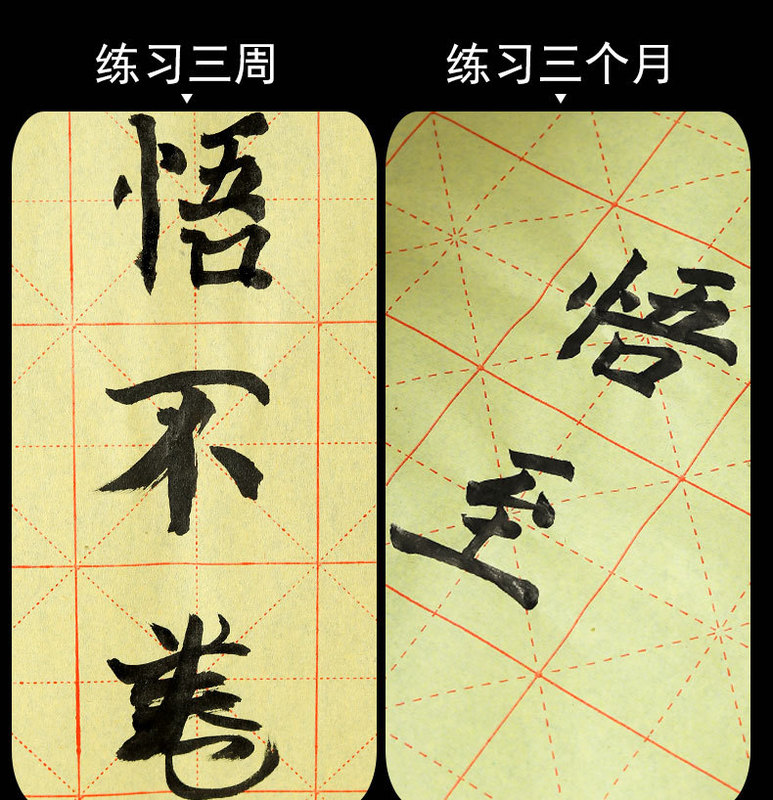 练习三周
练习三个月
悟不
悟至